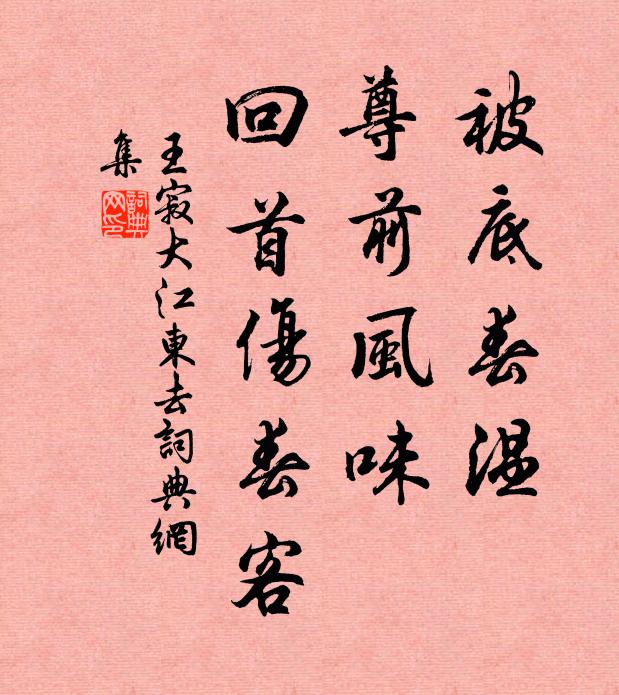 被底春温
尊前風味
回首傷春客
王寂大江東去詞典網
集
詞典
网印